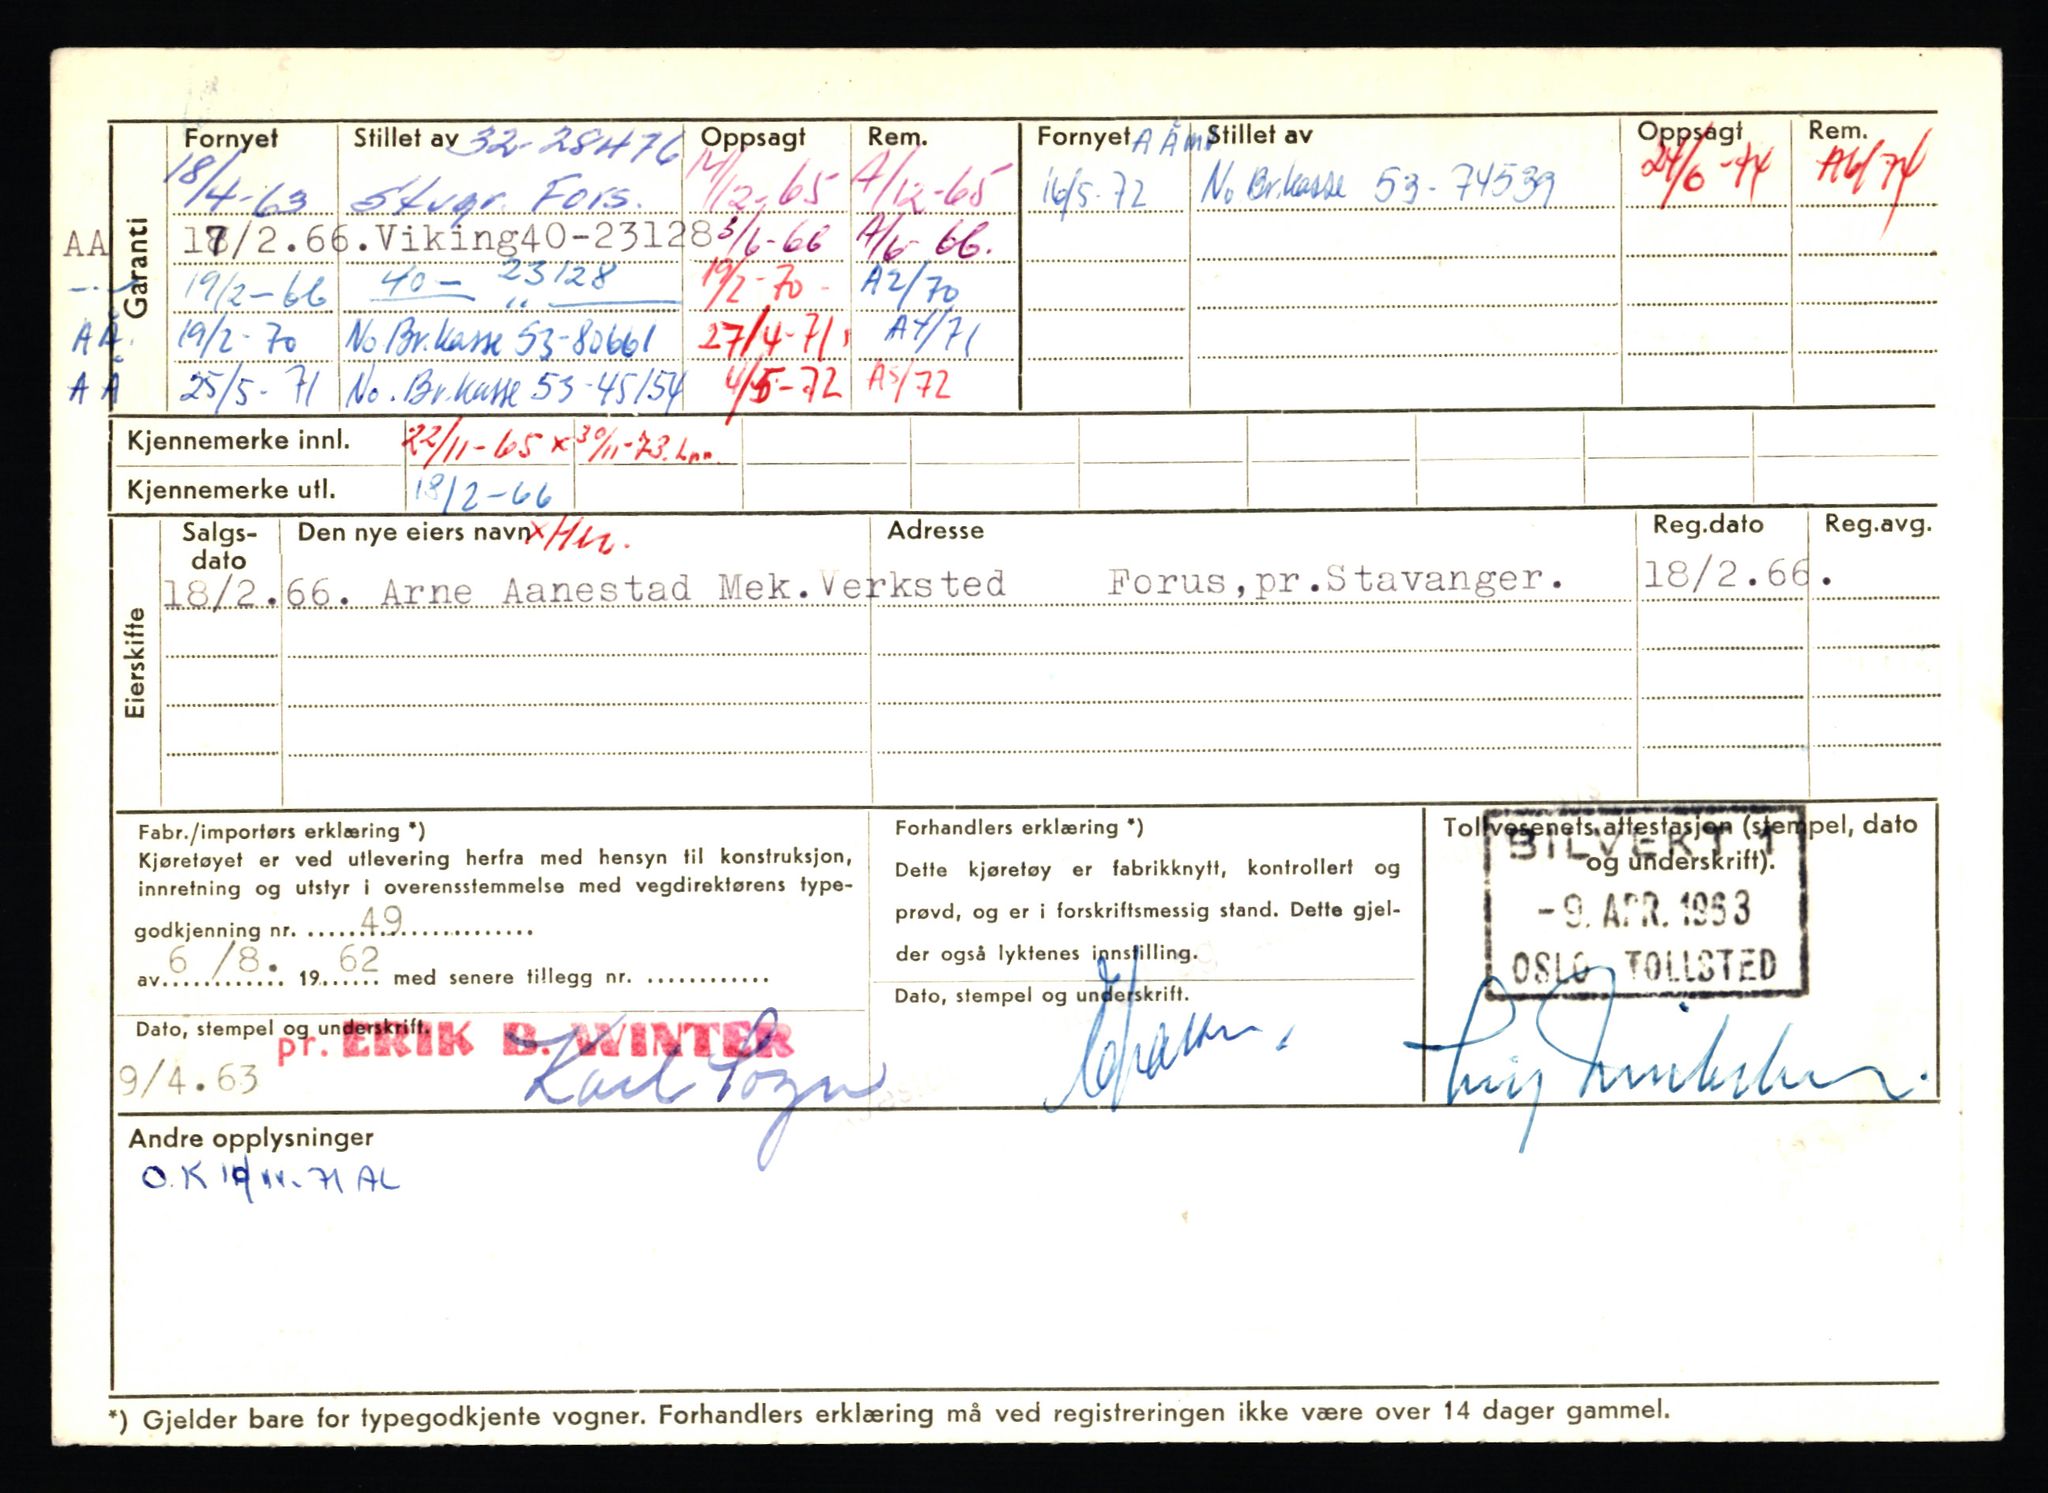 Garanti
Fornyet Stillet av 32-28476 Oppsagt Rem. Fornyet Stillet av Oppsagt Rem.
18/4-63 Stvgr. Fors. 12-65 A/12-65 16/5-72 No Br.kasse 53-74539 24/6-74 A6/74
AA 17/2.66. Viking40-23128 3/6-66 A/6-66.
19/2-66 40-23128 19/2-70- A2/70
AÅ. 19/2-70 No Br.kasse 53-80661 27/4-71 A4/71
AÅ 25/5-71 No. Br.kasse 53-45154 4/5-72 A5/72
Kjennemerke innl. 22/11-65 x 30/11-73.
Kjennemerke utl. 18/2-66
Eierskifte
Salgs-dato Den nye eiers navn x Adresse Reg.dato Reg.avg.
18/2.66. Arne Aanestad Mek.Verksted Forus,pr.Stavanger. 18/2.66.
Fabr./importørs erklæring *)
Kjøretøyet er ved utlevering herfra med hensyn til konstruksjon,
innretning og utstyr i overensstemmelse med vegdirektørens type-
godkjenning nr. 49
av 6/8. 1962 med senere tillegg nr.
Dato, stempel og underskrift.
9/4.63 pr. ERIK B. WINTER
Karl
Forhandlers erklæring *)
Dette kjøretøy er fabrikknytt, kontrollert og
prøvd, og er i forskriftsmessig stand. Dette gjel-
der også lyktenes innstilling.
Dato, stempel og underskrift.
Tollvesenets attestasjon (stempel, dato
og underskrift).
BILVEKT 1
-9. APR. 1963
OSLO TOLLSTED
Andre opplysninger
O.K 71 AL
*) Gjelder bare for typegodkjente vogner. Forhandlers erklæring må ved registreringen ikke være over 14 dager gammel.